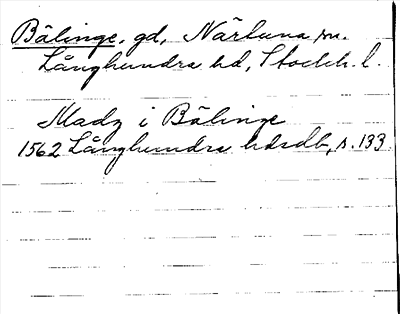 Bälinge, gd, Närtuna sn.
Långhundra hd, Stockh. l.
Mady i Bälinge
1562 Långhundra hdsdb, s. 133